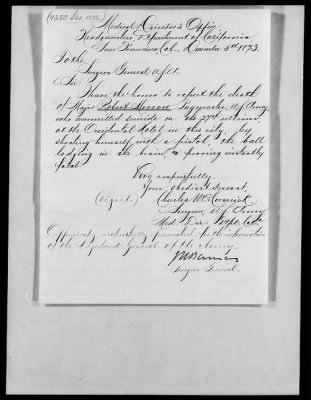 (4350, Dec. 1873.)
Medical Director's Office
Headquarters, Department of California
San Francisco, Cal. December 3rd 1873.
To the
Surgeon General, U.S.A.
Sir
I have the honor to report the death
of Major Robert Morrow Paymaster, U.S. Army,
who committed suicide on the 27th ultimo,
at the Occidental Hotel in this city, by
shooting himself with a pistol, the ball
lodging in the brain, & proving instantly
fatal.
Very respectfully,
Your obedient servant,
(signed.) Charles McCormick
Surgeon, U.S. Army
Med. Dir. Dept. Cal.
Official, respectfully furnished for the information
of the Adjutant General of the Army.
Surgeon General.